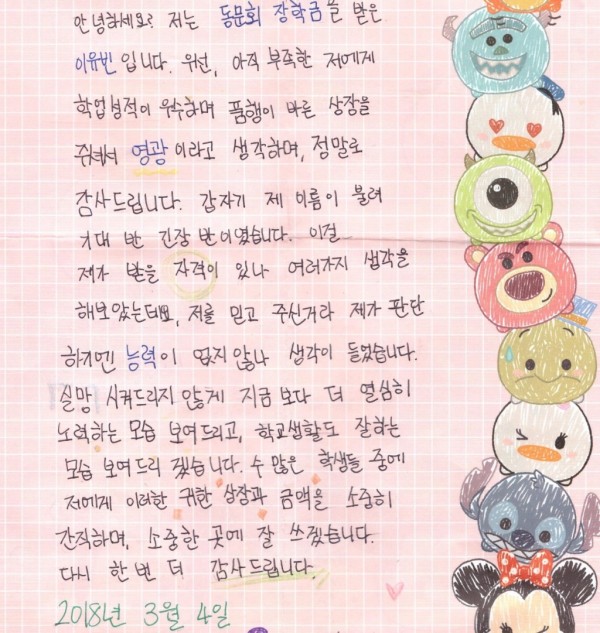 안녕하세요 저는 동문회 장학금을 받은
이유빈입니다. 우선, 아직 부족한 저에게
학업성적이 우수하며 품행이 바른 상장을
줘서 영광이라고 생각하며, 정말로
감사드립니다. 갑자기 제 이름이 불려
기대 반 긴장 반이였습니다. 이걸
제가 받을 자격이 있나 여러가지 생각을
해보았는데요, 저를 믿고 주신거라 제가 판단
하기엔 능력이 없지않나 생각이 들었습니다.
실망 시켜드리지 않게 지금 보다 더 열심히
노력하는 모습 보여드리고, 학교생활도 잘하는
모습 보여드리 겠습니다. 수 많은 학생들 중에
저에게 이러한 귀한 상장과 금액을 소중히
간직하며, 소중한 곳에 잘 쓰겠습니다.
다시 한 번 더 감사드립니다.
2018년 3월 4일